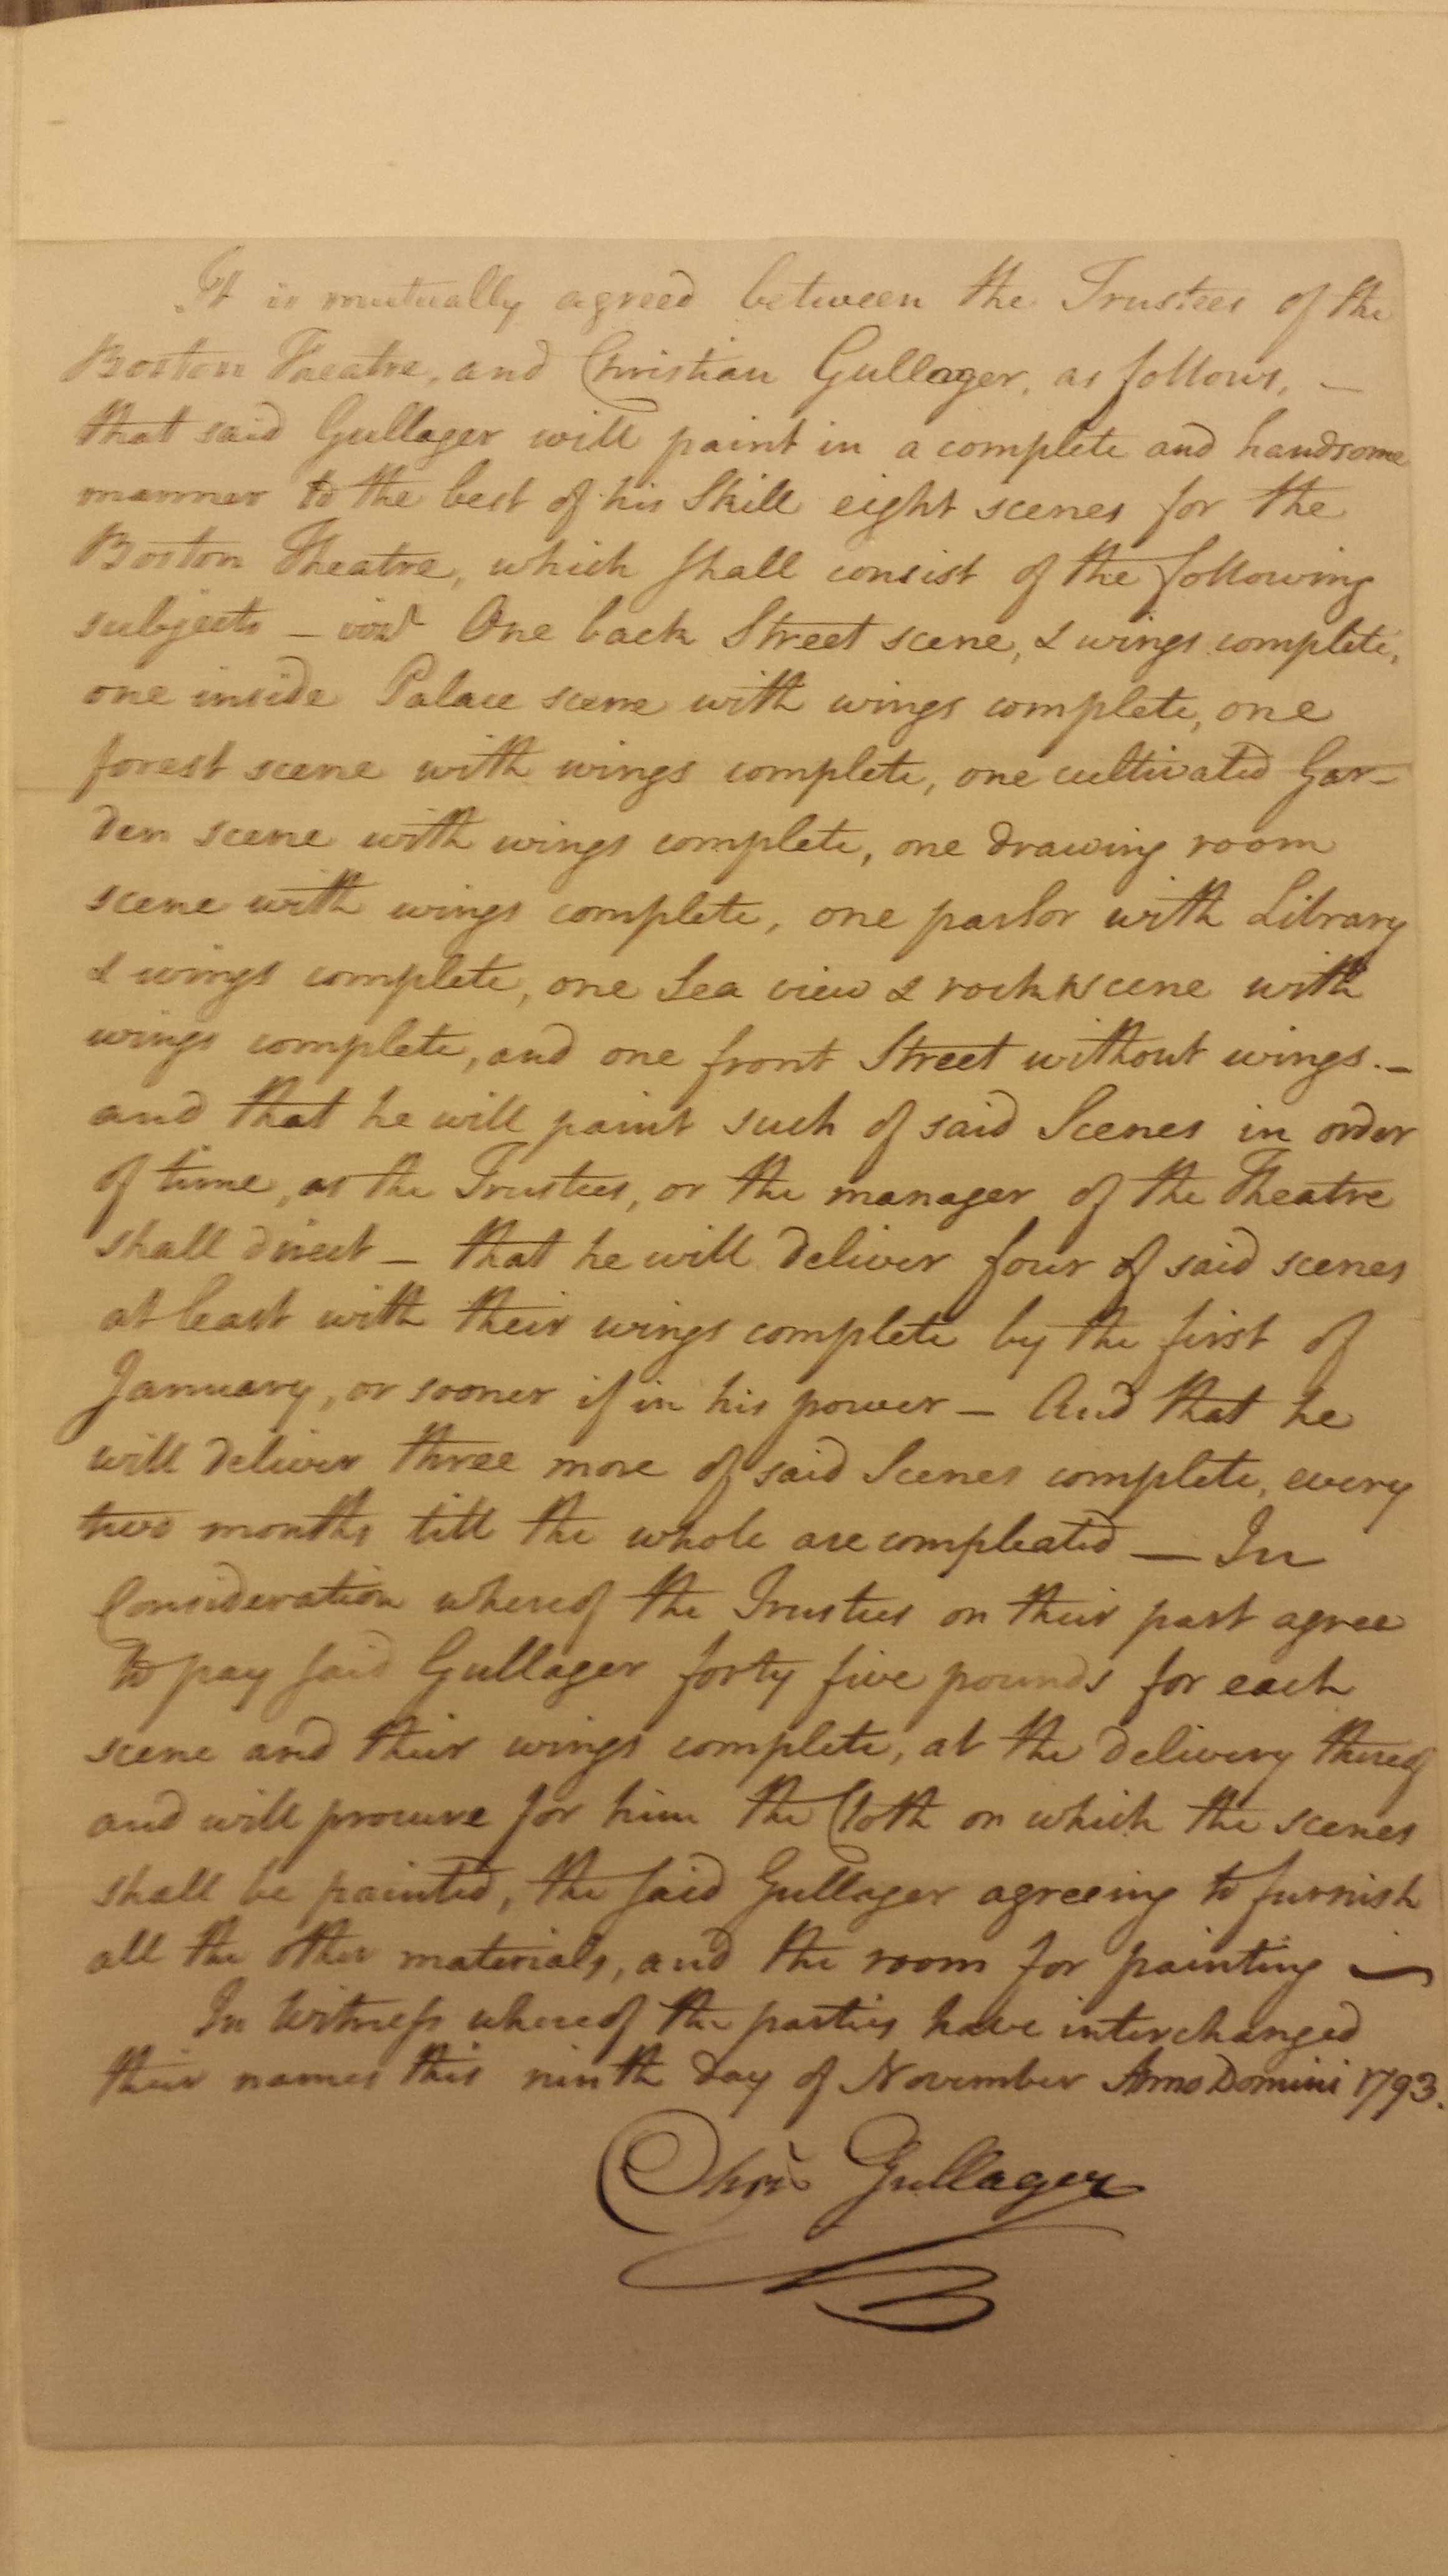 It is mutually agreed between the Trustees of the
Boston Theatre, and Christian Gullager, as follows, —
that said Gullager will paint in a complete and handsome
manner to the best of his Skill eight scenes for the
Boston Theatre, which shall consist of the following
subjects — One back Street scene, & wings complete,
one inside Palace scene with wings complete, one
forest scene with wings complete, one cultivated Gar-
den scene with wings complete, one drawing room
scene with wings complete, one parlor with Library
& wings complete, one Sea view & rock scene with
wings complete, and one front Street without wings. —
and that he will paint such of said Scenes in order
of time, as the Trustees, or the manager of the Theatre
shall direct — that he will deliver four of said scenes
at least with their wings complete by the first of
January, or sooner if in his power — And that he
will deliver three more of said Scenes complete, every
two months till the whole are compleated — In
Consideration whereof the Trustees on their part agree
to pay said Gullager forty five pounds for each
scene and their wings complete, at the delivery thereof
and will procure for him the Cloth on which the scenes
shall be painted, the said Gullager agreeing to furnish
all the other materials, and the room for painting —
In Witness whereof the parties have interchanged
their names this ninth day of November Anno Domini 1793.
Chrn Gullager